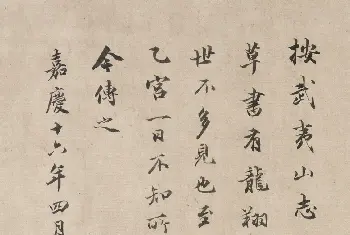 按武夷山志
草書有龍翔
世不多見也至
乙宮一日不知所
今傳之
嘉慶十六年四月